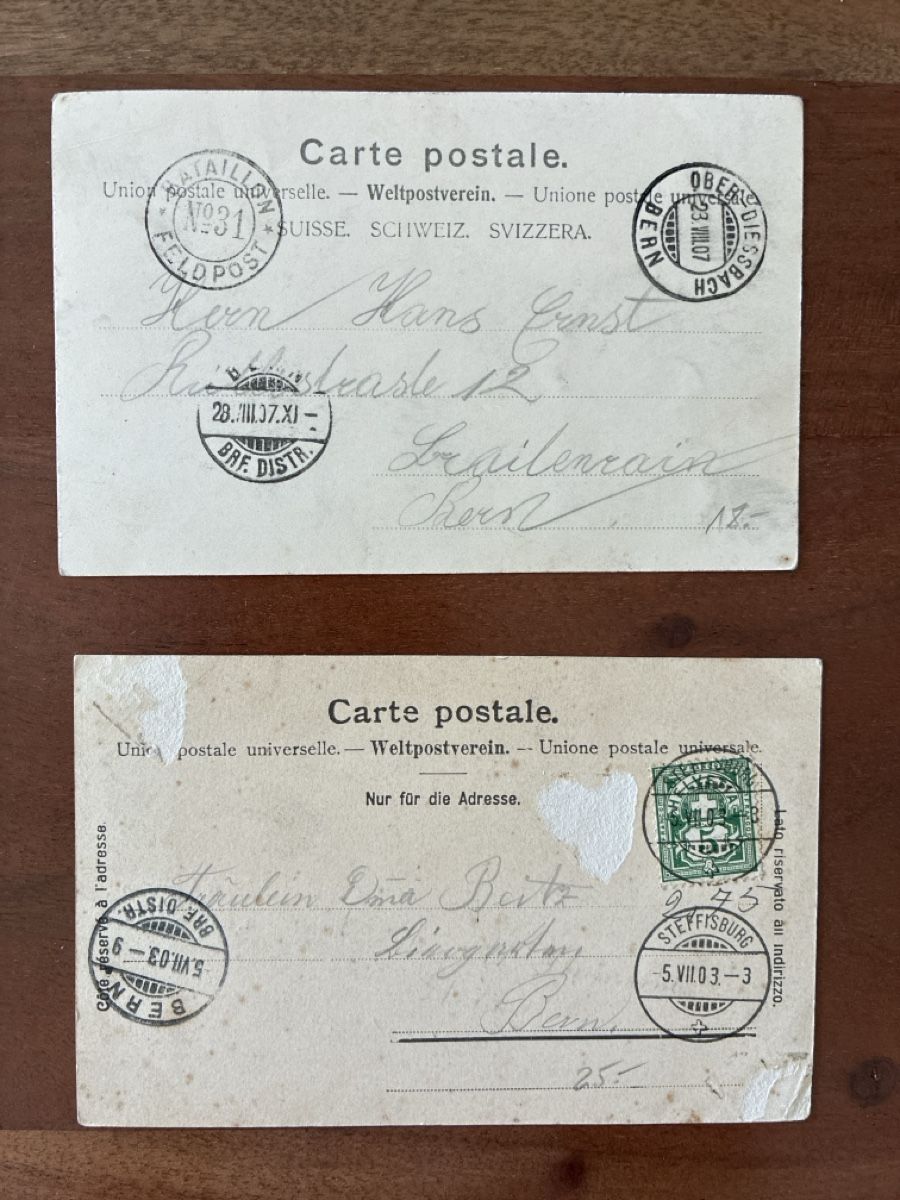 Carte postale.
Union postale universelle. — Weltpostverein. — Unione postale universale
SUISSE. SCHWEIZ. SVIZZERA.
BATAILLON
No. 31
FELDPOST
OBER-DIESSBACH
23.VIII.07
BERN
Herrn Hans Ernst
12
BERN
28.VIII.07.XI-
BRF. DISTR.
Breitenrain
Bern
18.-
Carte postale.
Union postale universelle. — Weltpostverein. — Unione postale universale.
Nur für die Adresse.
Côté réservé à l'adresse.
Lato riservato all indirizzo.
STEFFISBURG
5.VII.03.-3
HELVETIA
5
2 75
Fräulein
Bern
BERN
5.VII.03-9
BRF. DISTR.
STEFFISBURG
-5.VII.03.-3
25.-